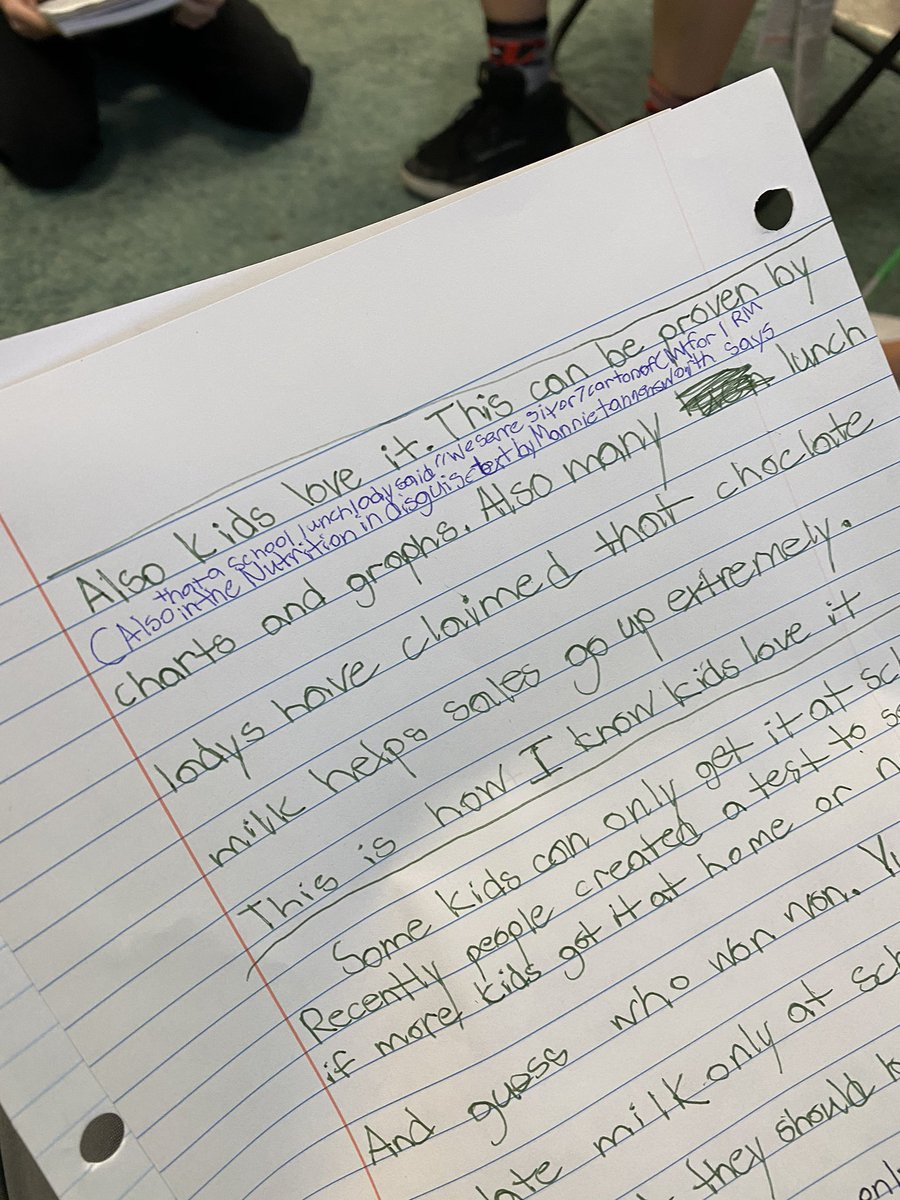 Also kids love it. This can be proven by
that a school lunch lady said "We serve six or 7 carton of CM for 1 RM
(Also in the Nutrition in disguise text by Mannie tannenswarth says
charts and graphs. Also many lunch
ladys have claimed that choclate
milk helps sales go up extremely.
This is how I know kids love it
Some kids can only get it at sch
Recently people created a test to se
if more kids got it at home or n
And guess who won non. Yu
late milk only at sch
they should k
only